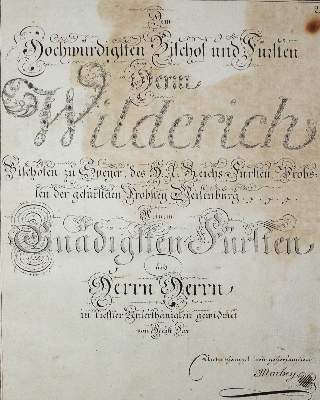 Dem
Hochwürdigsten Bischof und Fürsten
Herrn
Wilderich
Bischofen zu Speyer, des H. R. Reichs Fürsten Probs-
ten der gefürsteten Probstey Weisenburg . . . .
Meinem
Gnädigsten Fürsten
und
Herrn Herrn
in tiefster Unterthänigkeit gewidmet
von